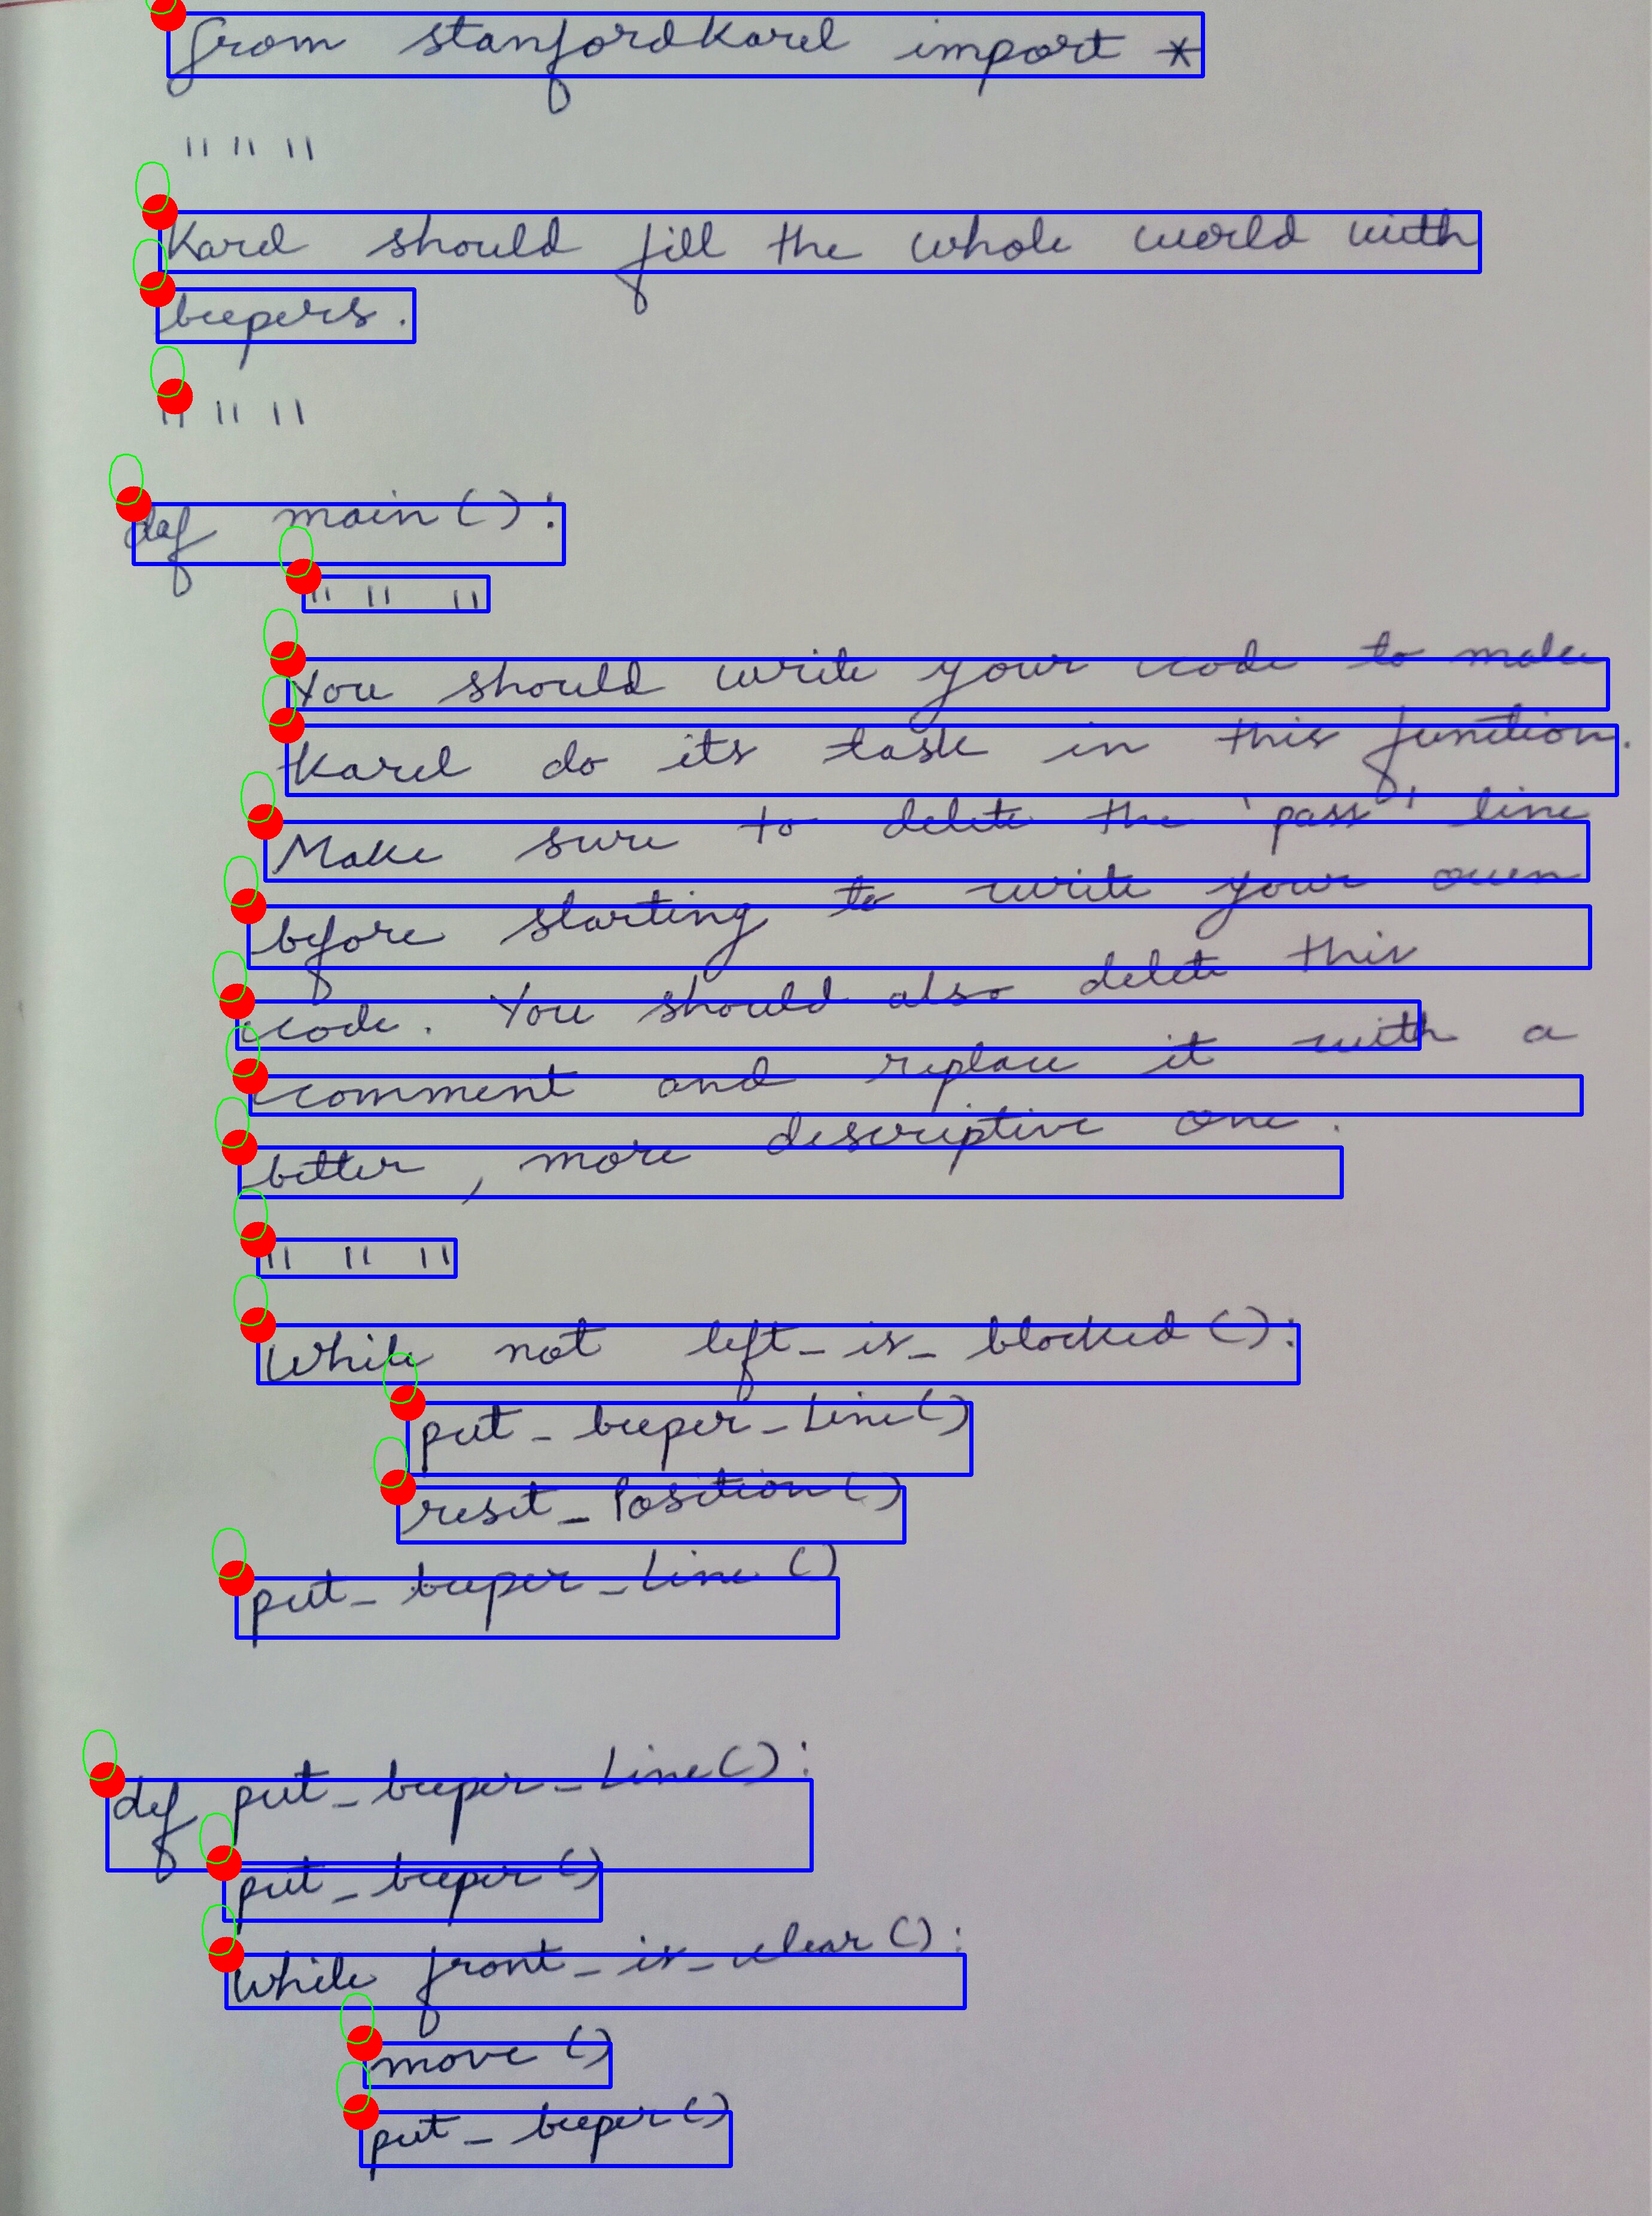 from stanfordkarel import *
" " "
Karel should fill the whole world with
beepers.
" " "
def main():
" " "
You should write your code to make
Karel do its task in this function.
Make sure to delete the 'pass' line
before starting to write your own
code. You should also delete this
comment and replace it with a
better, more descriptive one.
" " "
While not left_is_blocked():
put_beeper_Line()
reset_Position()
put_beeper_Line()
def put_beeper_Line():
put_beeper()
While front_is_clear():
move()
put_beeper()